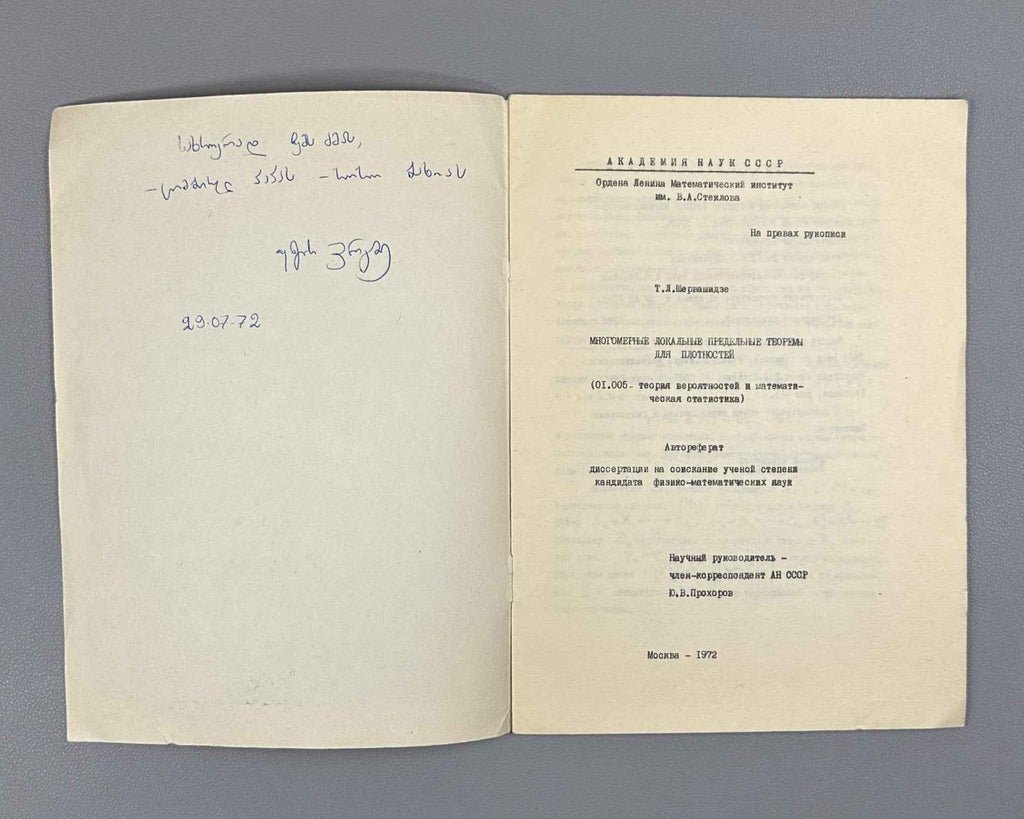 29.07.72
АКАДЕМИЯ НАУК СССР
Ордена Ленина Математический институт
им. В.А.Стеклова
На правах рукописи
Т.Л.Шервашидзе
МНОГОМЕРНЫЕ ЛОКАЛЬНЫЕ ПРЕДЕЛЬНЫЕ ТЕОРЕМЫ
ДЛЯ ПЛОТНОСТЕЙ
(01.005- теория вероятностей и математи-
ческая статистика)
Автореферат
диссертации на соискание ученой степени
кандидата физико-математических наук
Научный руководитель -
член-корреспондент АН СССР
Ю.В.Прохоров
Москва - 1972